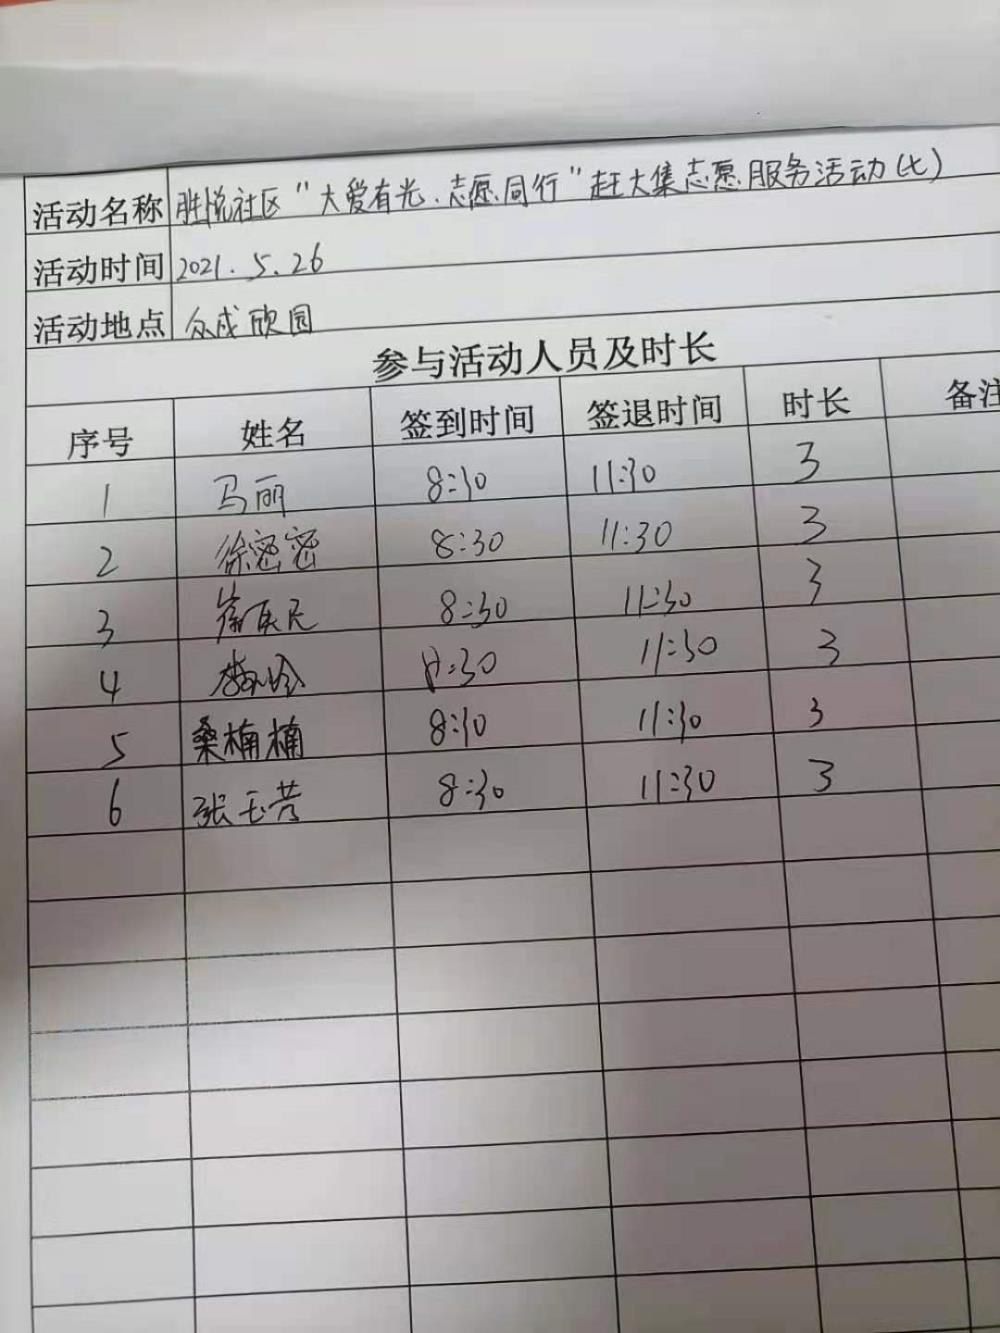 活动名称 胜悦社区“大爱有光.志愿同行”赶大集志愿服务活动(七)
活动时间 2021.5.26
活动地点 众成欣园
参与活动人员及时长
序号 姓名 签到时间 签退时间 时长 备注
1 马丽 8:30 11:30 3
2 徐密密 8:30 11:30 3
3 8:30 11:30 3
4 8:30 11:30 3
5 桑楠楠 8:30 11:30 3
6 张玉芳 8:30 11:30 3